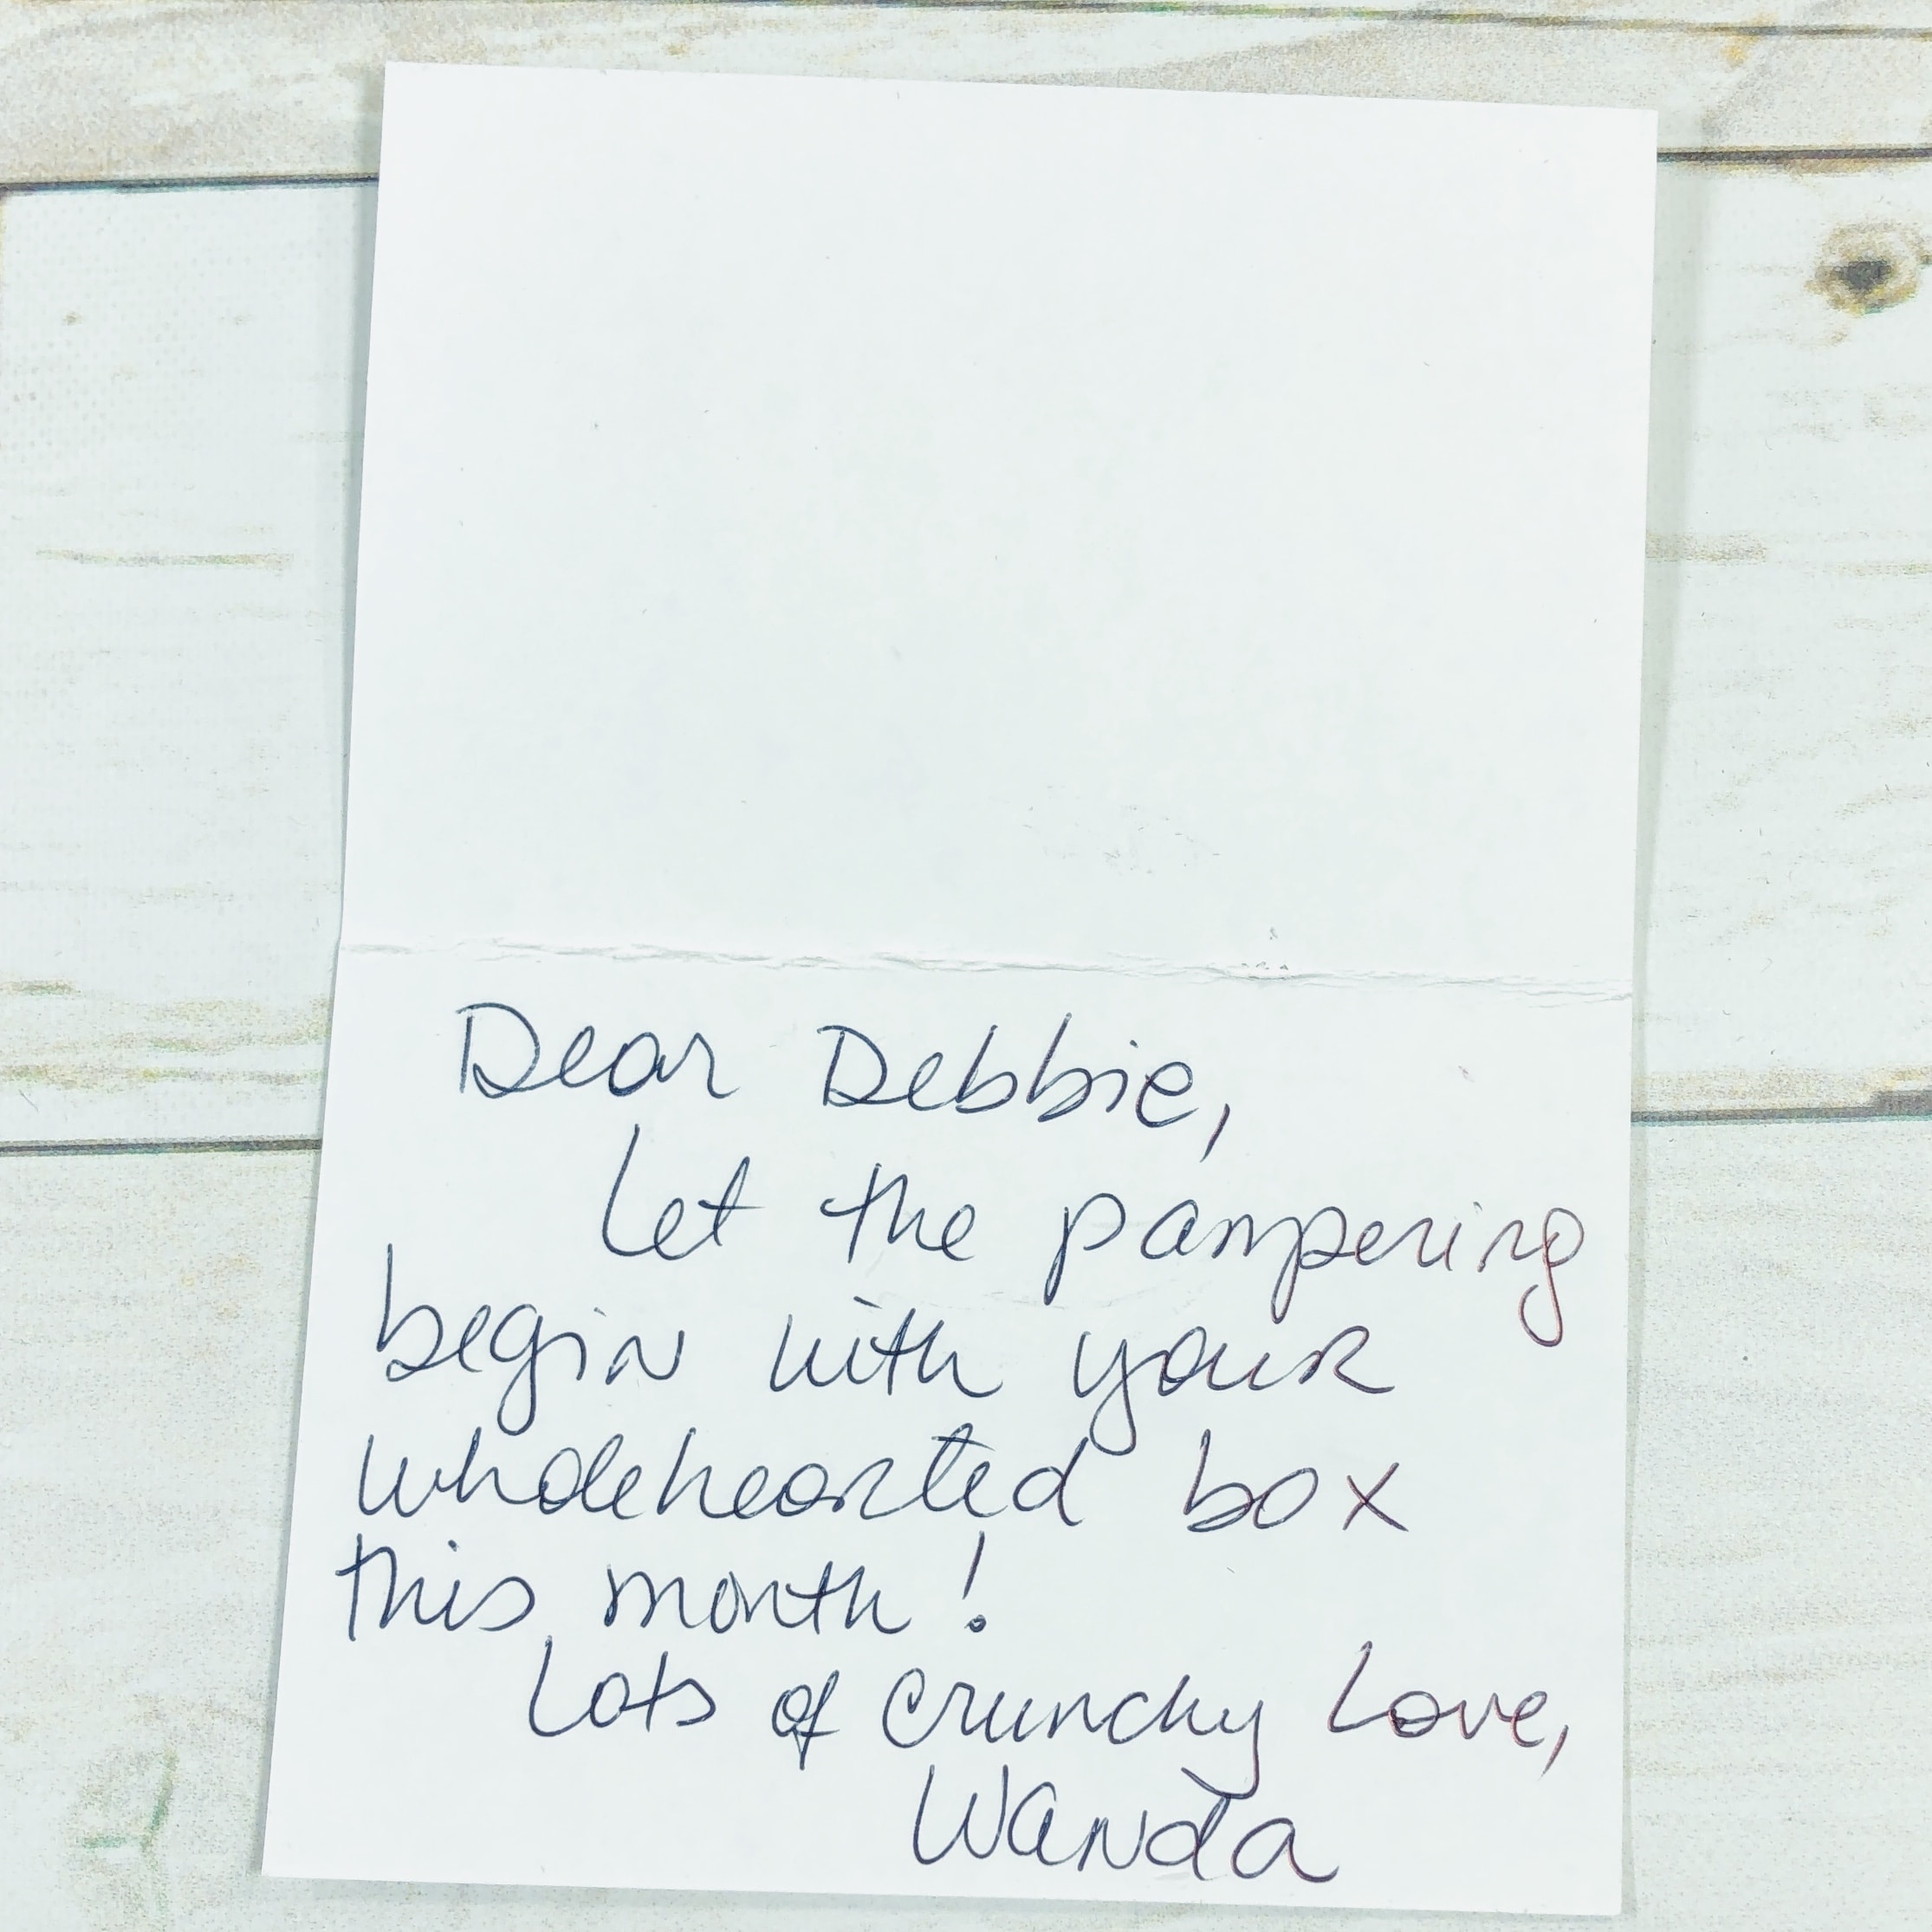 Dear Debbie,
Let the pampering
begin with your
wholehearted box
this month!
Lots of crunchy Love,
Wanda